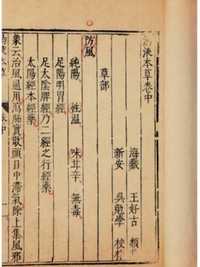 湯液本草卷中
海藏 王好古 類
新安 吳勉學 校
草部
防風
純陽 性溫 味甘辛 無毒
足陽明胃經
足太陰脾經乃二經之行經藥
太陽經本經藥
象云治風通用瀉肺實散頭目中滯氣除上焦風邪